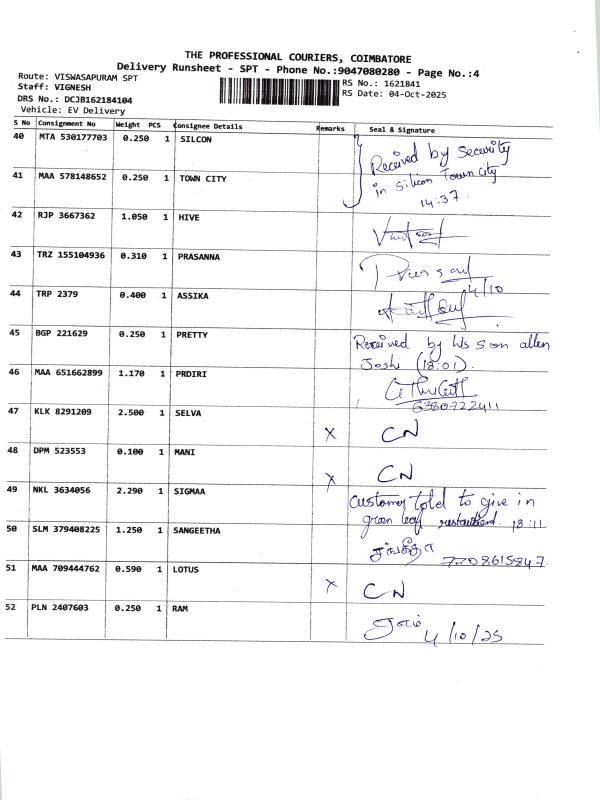 THE PROFESSIONAL COURIERS, COIMBATORE
Delivery Runsheet - SPT - Phone No.:9047080280 - Page No.:4
Route: VISWASAPURAM SPT
Staff: VIGNESH
DRS No.: DCJB162184104
Vehicle: EV Delivery
RS No.: 1621841
RS Date: 04-Oct-2025
S No Consignment No Weight PCS Consignee Details Remarks Seal & Signature
40 MTA 530177703 0.250 1 SILCON
Received by Security
in Silicon Town city
14:37
41 MAA 578148652 0.250 1 TOWN CITY
42 RJP 3667362 1.050 1 HIVE
43 TRZ 155104936 0.310 1 PRASANNA
4/10
44 TRP 2379 0.400 1 ASSIKA
45 BGP 221629 0.250 1 PRETTY
Received by his son allen
Joshi (18:01).
46 MAA 651662899 1.170 1 PRDIRI
6380722411
47 KLK 8291209 2.500 1 SELVA X CN
48 DPM 523553 0.100 1 MANI X CN
49 NKL 3634056 2.290 1 SIGMAA
Customer told to give in
green leaf 18:11
50 SLM 379408225 1.250 1 SANGEETHA
சங்கீதா
7708615847
51 MAA 709444762 0.590 1 LOTUS X CN
52 PLN 2407603 0.250 1 RAM
4/10/25